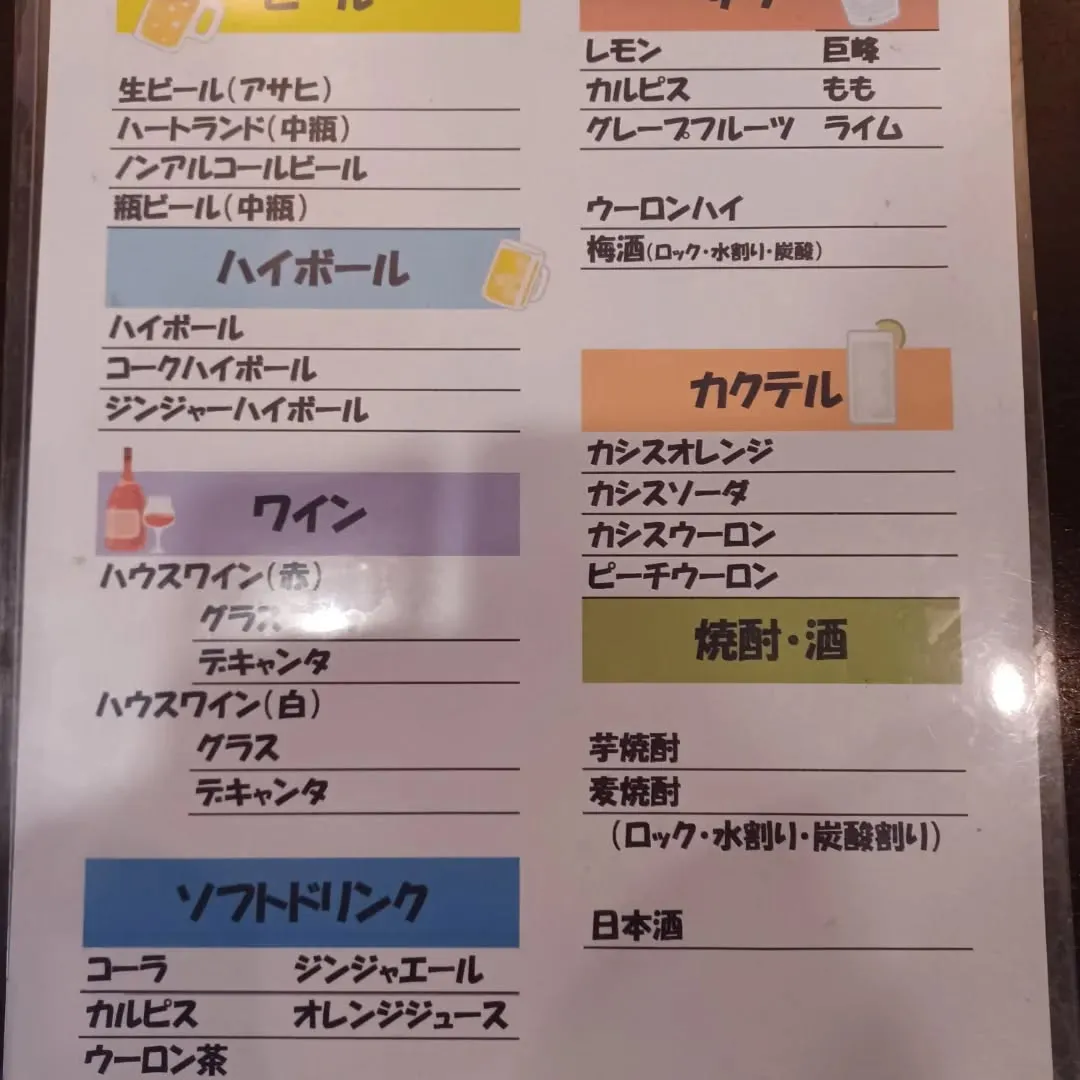 ビール
生ビール(アサヒ)
ハートランド(中瓶)
ノンアルコールビール
瓶ビール(中瓶)
ハイボール
ハイボール
コークハイボール
ジンジャーハイボール
ワイン
ハウスワイン(赤)
グラス
デキャンタ
ハウスワイン(白)
グラス
デキャンタ
ソフトドリンク
コーラ ジンジャエール
カルピス オレンジジュース
ウーロン茶
レモン 巨峰
カルピス もも
グレープフルーツ ライム
ウーロンハイ
梅酒(ロック・水割り・炭酸)
カクテル
カシスオレンジ
カシスソーダ
カシスウーロン
ピーチウーロン
焼酎・酒
芋焼酎
麦焼酎
(ロック・水割り・炭酸割り)
日本酒